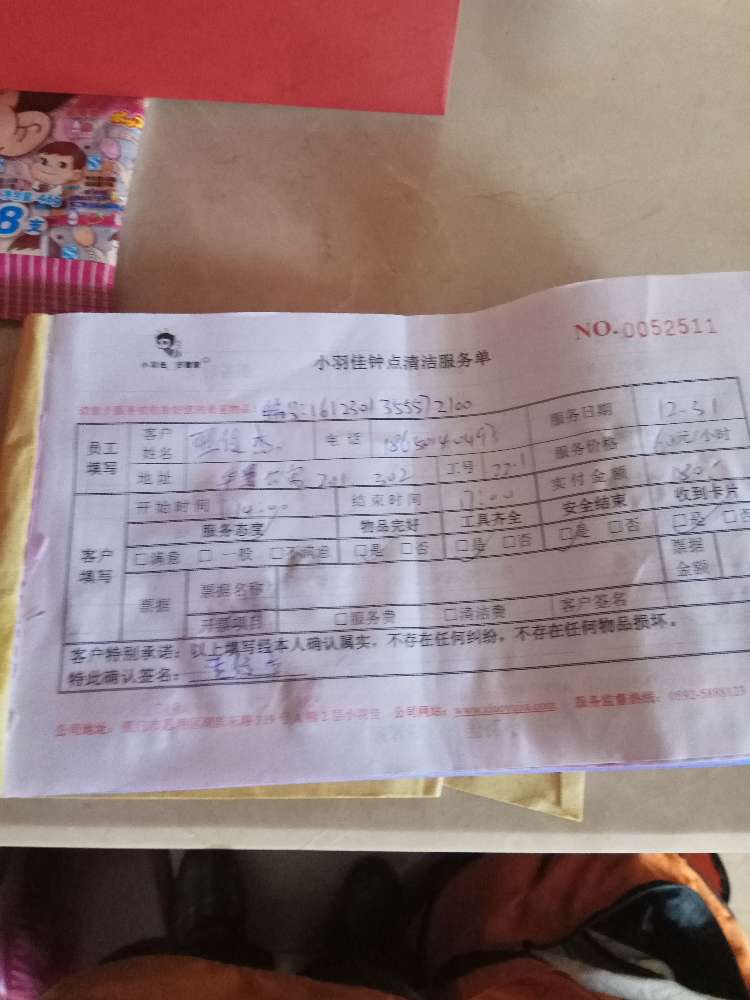 8支
NO.0052511
小羽佳钟点清洁服务单
编号:1612301355572100
员工填写 客户姓名 电话 服务日期 12-31
地址 201. 302 工号 22.1 服务价格 60元/小时
开始时间 14:00 结束时间 17:00 实付金额 180
客户填写 服务态度 物品完好 工具齐全 安全结束 收到卡片
□满意 □一般 □不满意 □是 □否 □是 □否 □是 □否 □是 □否
票据 票据名称 票据金额
开票项目 □服务费 □清洁费 客户签名
客户特别承诺:以上填写经本人确认属实,不存在任何纠纷,不存在任何物品损坏。
特此确认签名:
公司地址: 2层小羽佳 公司网站: 服务监督热线:0592-5888123